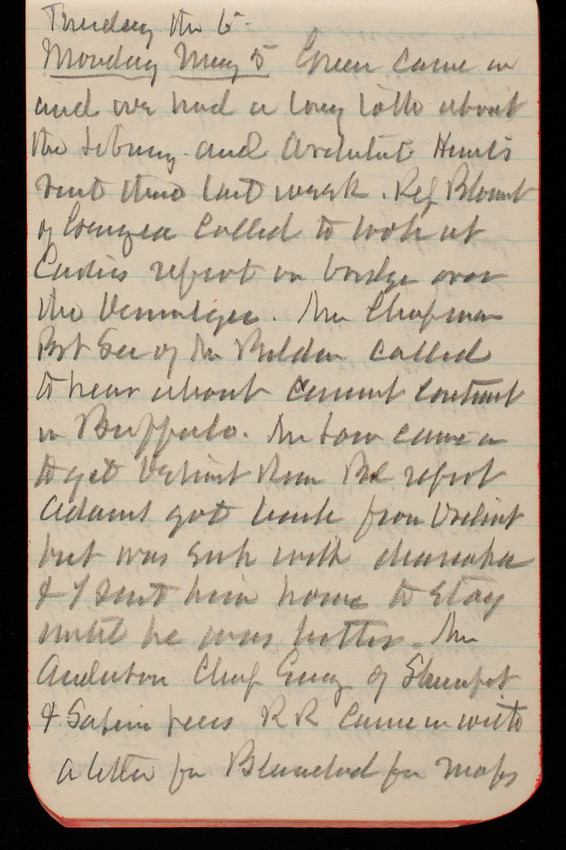 Tuesday the 6
Monday May 5 Green came in
and we had a long talk about
the library and Architect Hunt's
visit there last week. Rep Blount
of Georgia called to look at
Cadies report on bridge over
the Demulgee. Mr Chapman
Pvt Sec of Mr Belden called
to hear about cement contract
in Buffalo. Mr Low came in
to get report
Adams got back from
but was sick with diarrhea
& I sent him home to stay
until he was better. Mr
Anderson Chief Eng of Shrevport
& Sabine pass RR came in with
a letter for Blanchard for maps